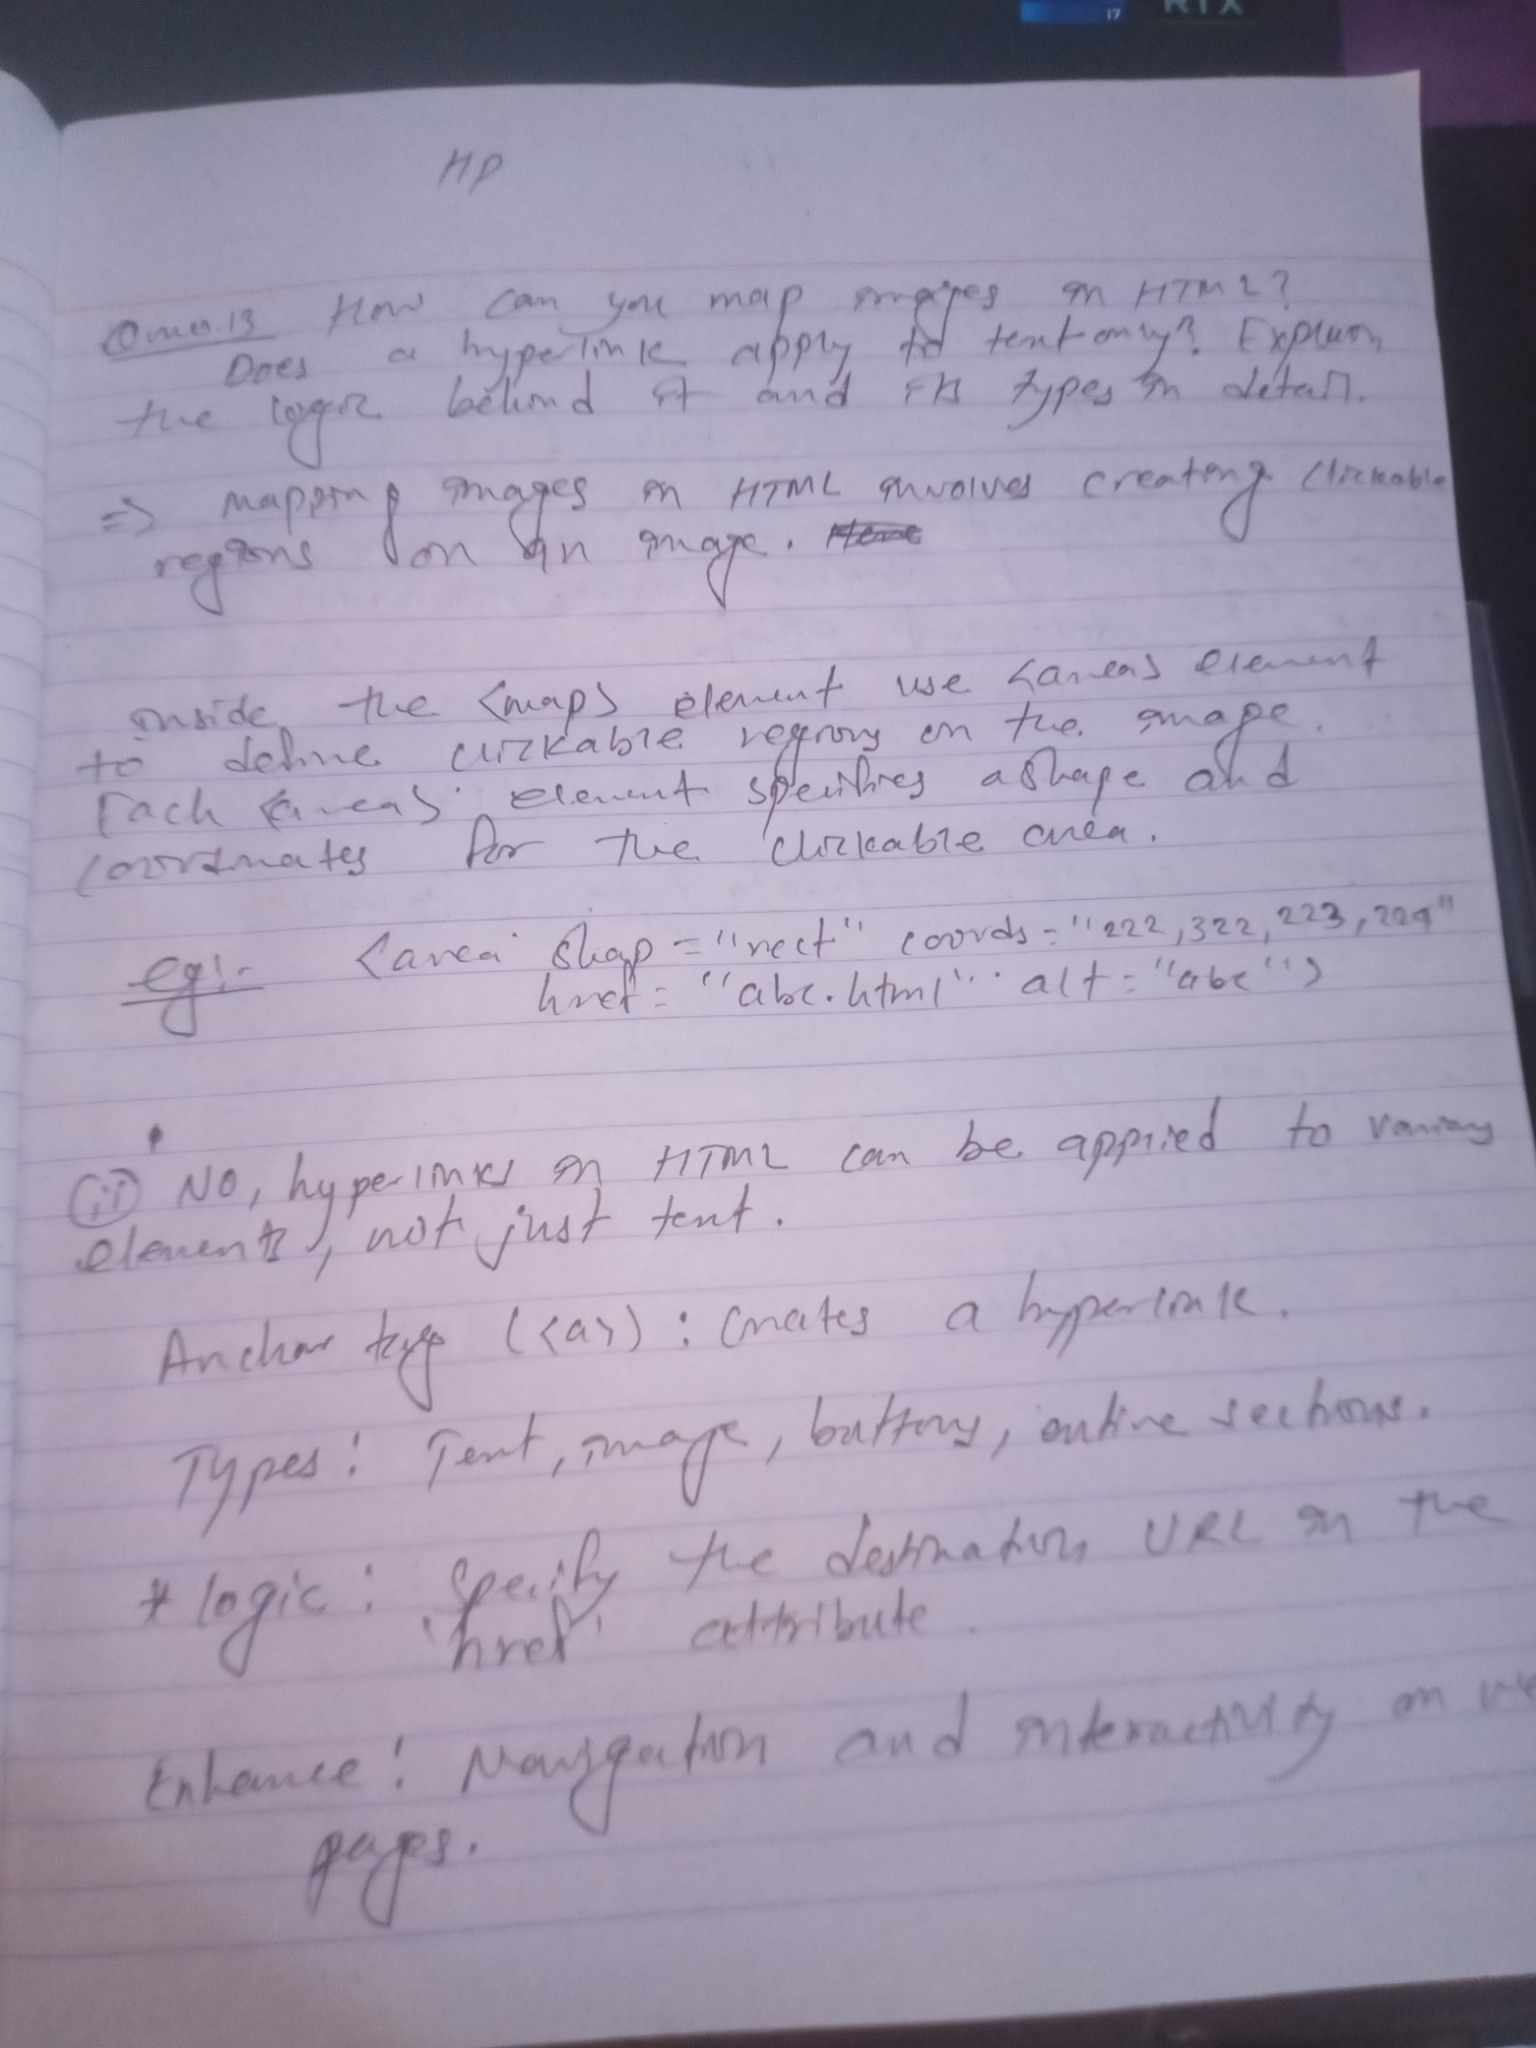 17 RTX
HP
Ques.13 How can you map images in HTML?
Does a hyperlink apply to text only? Explain
the logic behind it and its types in detail.
=> Mapping images in HTML involves creating clickable
regions on an image.
inside the <map> element use <area> element
to define clickable regions on the image.
Each <area> element specifies a shape and
coordinates for the clickable area.
eg:- <area shap="rect" coords="222,322,223,224"
href="abc.html" alt="abc">
(ii) NO, hyperlinks in HTML can be applied to various
elements, not just text.
Anchor tag (<a>): Creates a hyperlink.
Types: Text, image, buttons, entire sections.
* logic: Specify the destination URL in the
'href' attribute.
Enhance: Navigation and interactivity on
pages.